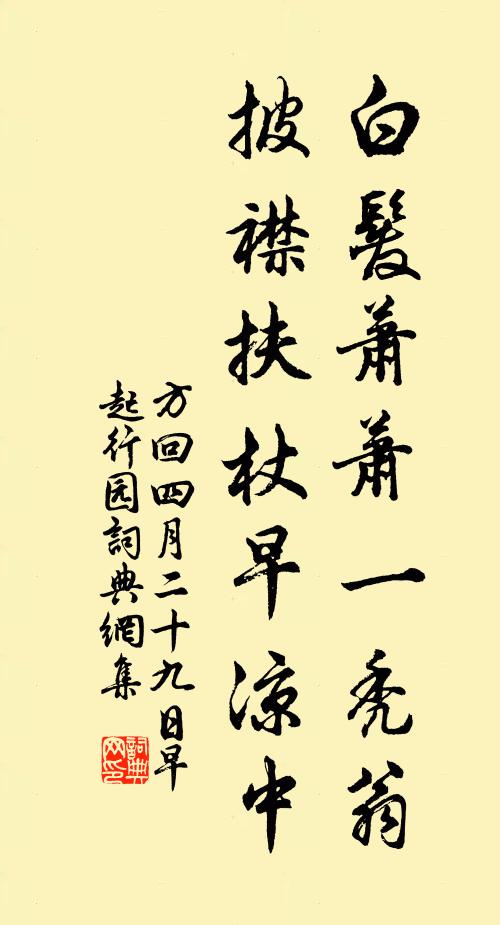 白髮蕭蕭一禿翁
披襟扶杖早涼中
方回四月二十九日早
起行园詞典網集
詞典
网印